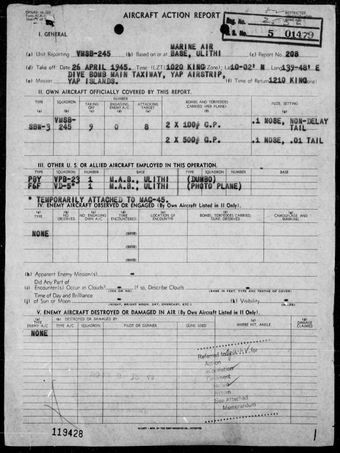 AIRCRAFT ACTION REPORT
RESTRICTED
I. GENERAL
S 01479
MARINE AIR
(a) Unit Reporting VMSB-245 (b) Based on or at BASE, ULITHI (c) Report No. 208
(d) Take off: Date 26 APRIL 1945, Time (LZT) 1020 KING (Zone); Lat. 10-02' N Long. 139-48' E
DIVE BOMB MAIN TAXIWAY, YAP AIRSTRIP,
(e) Mission YAP ISLANDS. (f) Time of Return 1210 KING (Zone)
II. OWN AIRCRAFT OFFICIALLY COVERED BY THIS REPORT.
NUMBER
TYPE SQUADRON TAKING OFF ENGAGING ENEMY A/C ATTACKING TARGET BOMBS AND TORPEDOES CARRIED (PER PLANE) FUZE, SETTING
VMSB-
SBW-3 245 9 0 8 2 X 100# G.P. .1 NOSE, NON-DELAY TAIL
2 X 500# G.P. .1 NOSE, .01 TAIL
III. OTHER U. S. OR ALLIED AIRCRAFT EMPLOYED IN THIS OPERATION.
TYPE SQUADRON NUMBER BASE TYPE SQUADRON NUMBER BASE
PBY VPB-23 1 M.A.B., ULITHI (DUMBO)
F6F VD-5* 1 M.A.B., ULITHI (PHOTO PLANE)
* TEMPORARILY ATTACHED TO MAG-45.
IV. ENEMY AIRCRAFT OBSERVED OR ENGAGED (By Own Aircraft Listed in II Only).
NONE
(h) Apparent Enemy Mission(s)
Did Any Part of
(i) Encounter(s) Occur in Clouds? If so, Describe Clouds
(YES OR NO)
Time of Day and Brilliance
(j) of Sun or Moon (k) Visibility
V. ENEMY AIRCRAFT DESTROYED OR DAMAGED IN AIR (By Own Aircraft Listed in II Only).
(b) DESTROYED OR DAMAGED BY:
TYPE ENEMY A/C TYPE A/C SQUADRON PILOT OR GUNNER GUNS USED WHERE HIT, ANGLE DAMAGE CLAIMED
NONE
Referred to for
Action
Information
Comment
See Attached
Memorandum
119428
1